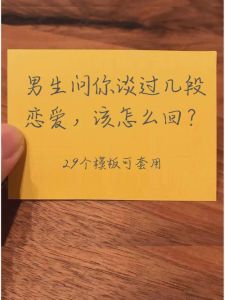 男生问你谈过几段
恋爱，该怎么回？
29个模板可套用